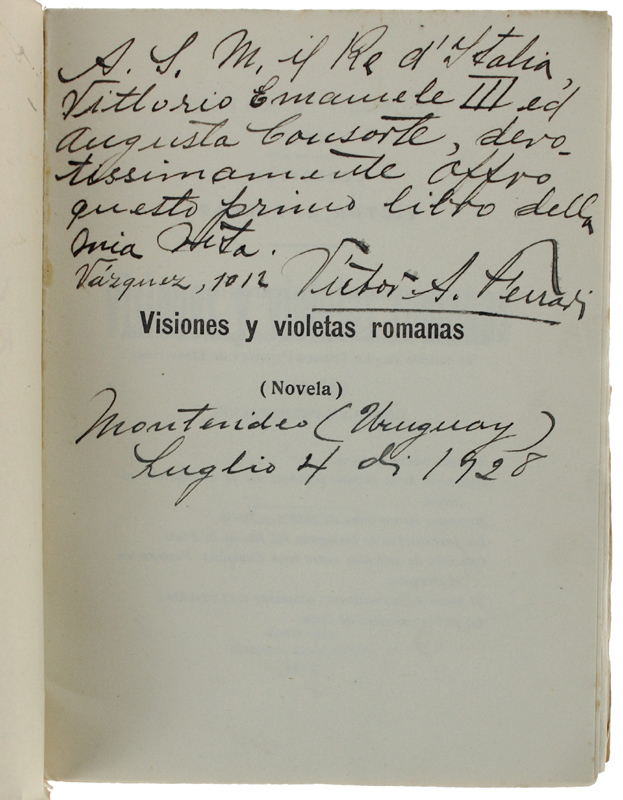 A. S. M. il Re d'Italia,
Vittorio Emanuele III ed
Augusta Consorte, devo-
tissimamente offro
questo primo libro della
mia vita.
Vázquez, 1012 Victor A. Ferrari
Visiones y violetas romanas
(Novela)
Montevideo (Uruguay)
Luglio 4 di 1928